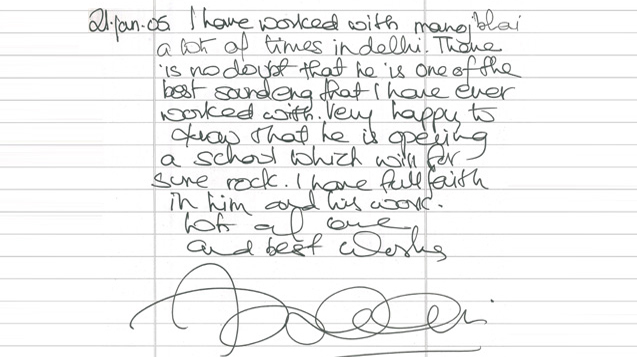 21.jan.05 I have worked with manoj bhai
a lot of times in delhi. There
is no doubt that he is one of the
best sardeng that I have ever
worked with. Very happy to
know that he is opening
a school which will for
sure rock. I have full faith
in him and his work.
Lots of love
and best wishes